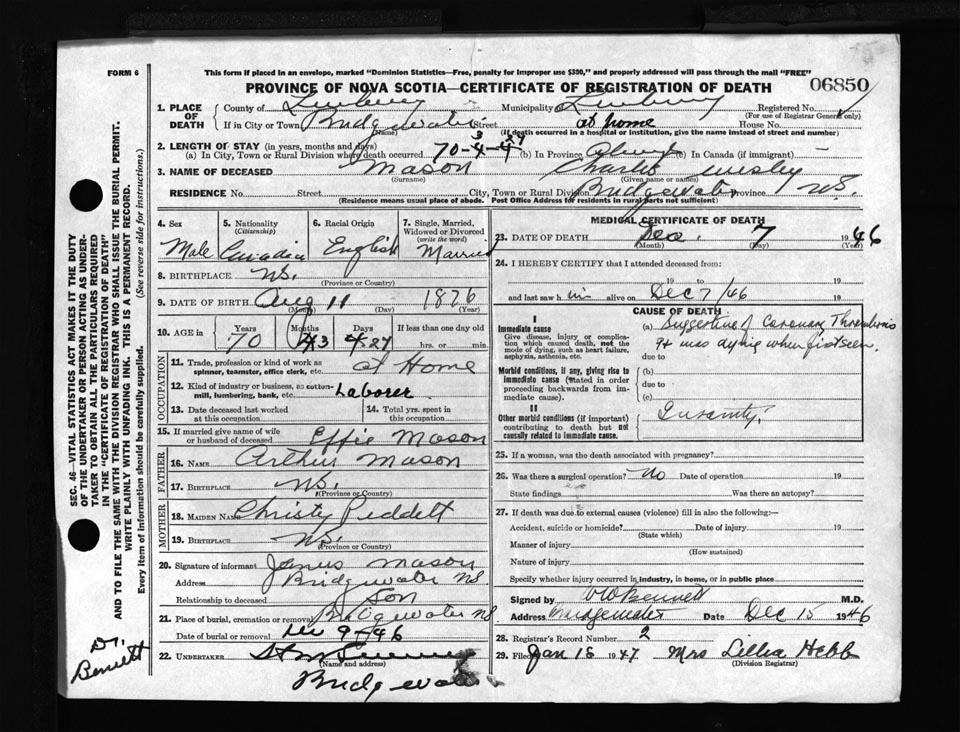 FORM 6
This form if placed in an envelope, marked "Dominion Statistics—Free, penalty for improper use $300," and properly addressed will pass through the mail "FREE"
PROVINCE OF NOVA SCOTIA—CERTIFICATE OF REGISTRATION OF DEATH
06850
1. PLACE OF DEATH County of Lunenburg Municipality Lunenburg Registered No.
(For use of Registrar General only)
If in City or Town Bridgewater Street at home House No.
(Name) (If death occurred in a hospital or institution, give the name instead of street and number)
2. LENGTH OF STAY (in years, months and days)
(a) In City, Town or Rural Division where death occurred 70-4-4 3 27 (b) In Province Always (c) In Canada (if immigrant) —
3. NAME OF DECEASED Mason Charles Wesley
(Surname) (Given name or names)
RESIDENCE No. Street City, Town or Rural Division Bridgewater Province N.S.
(Residence means usual place of abode. Post Office Address for residents in rural parts not sufficient)
4. Sex
Male
5. Nationality (Citizenship)
Canadian
6. Racial Origin
English
7. Single, Married, Widowed or Divorced (write the word)
Married
8. BIRTHPLACE N.S.
(Province or Country)
9. DATE OF BIRTH Aug 11 1876
(Month) (Day) (Year)
10. AGE in Years Months Days If less than one day old
70 4 3 4 27 hrs. or min.
OCCUPATION
11. Trade, profession or kind of work as spinner, teamster, office clerk, etc. at Home
12. Kind of industry or business, as cotton-mill, lumbering, bank, etc. Laborer
13. Date deceased last worked at this occupation
14. Total yrs. spent in this occupation
15. If married give name of wife or husband of deceased Effie Mason
FATHER
16. NAME Arthur Mason
17. BIRTHPLACE N.S.
(Province or Country)
MOTHER
18. MAIDEN NAME Christy
19. BIRTHPLACE N.S.
(Province or Country)
20. Signature of informant James Mason
Address Bridgewater N.S.
Relationship to deceased Son
21. Place of burial, cremation or removal Bridgewater N.S.
Date of burial or removal Dec 9-46
22. UNDERTAKER
(Name and address)
Bridgewater
MEDICAL CERTIFICATE OF DEATH
23. DATE OF DEATH Dec. 7 1946
(Month) (Day) (Year)
24. I HEREBY CERTIFY that I attended deceased from:
19 to 19
and last saw h im alive on Dec 7/46
CAUSE OF DEATH
I
Immediate cause
Give disease, injury or complication which caused death, not the mode of dying, such as heart failure, asphyxia, asthenia, etc.
(a) Suggestive of Coronary Thrombosis
Pt was dying when first seen.
due to
Morbid conditions, if any, giving rise to immediate cause (stated in order proceeding backwards from immediate cause).
(b)
due to
(c)
II
Other morbid conditions (if important) contributing to death but not causally related to immediate cause.
25. If a woman, was the death associated with pregnancy?
26. Was there a surgical operation? No Date of operation 19
State findings Was there an autopsy?
27. If death was due to external causes (violence) fill in also the following:—
Accident, suicide or homicide? Date of injury 19
(State which)
Manner of injury
(How sustained)
Nature of injury
Specify whether injury occurred in industry, in home, or in public place
Signed by Bennett M.D.
Address Bridgewater Date Dec 15 1946
28. Registrar's Record Number 2
29. Filed Jan 18 1947 Mrs Lillia Hebb
(Division Registrar)
SEC. 46—VITAL STATISTICS ACT MAKES IT THE DUTY
OF THE UNDERTAKER OR PERSON ACTING AS UNDER-
TAKER TO OBTAIN ALL THE PARTICULARS REQUIRED
IN THE "CERTIFICATE OF REGISTRATION OF DEATH"
AND TO FILE THE SAME WITH THE DIVISION REGISTRAR WHO SHALL ISSUE THE BURIAL PERMIT.
WRITE PLAINLY WITH UNFADING INK. THIS IS A PERMANENT RECORD.
Every item of information should be carefully supplied. (See reverse side for instructions.)
Dr.
Bennett